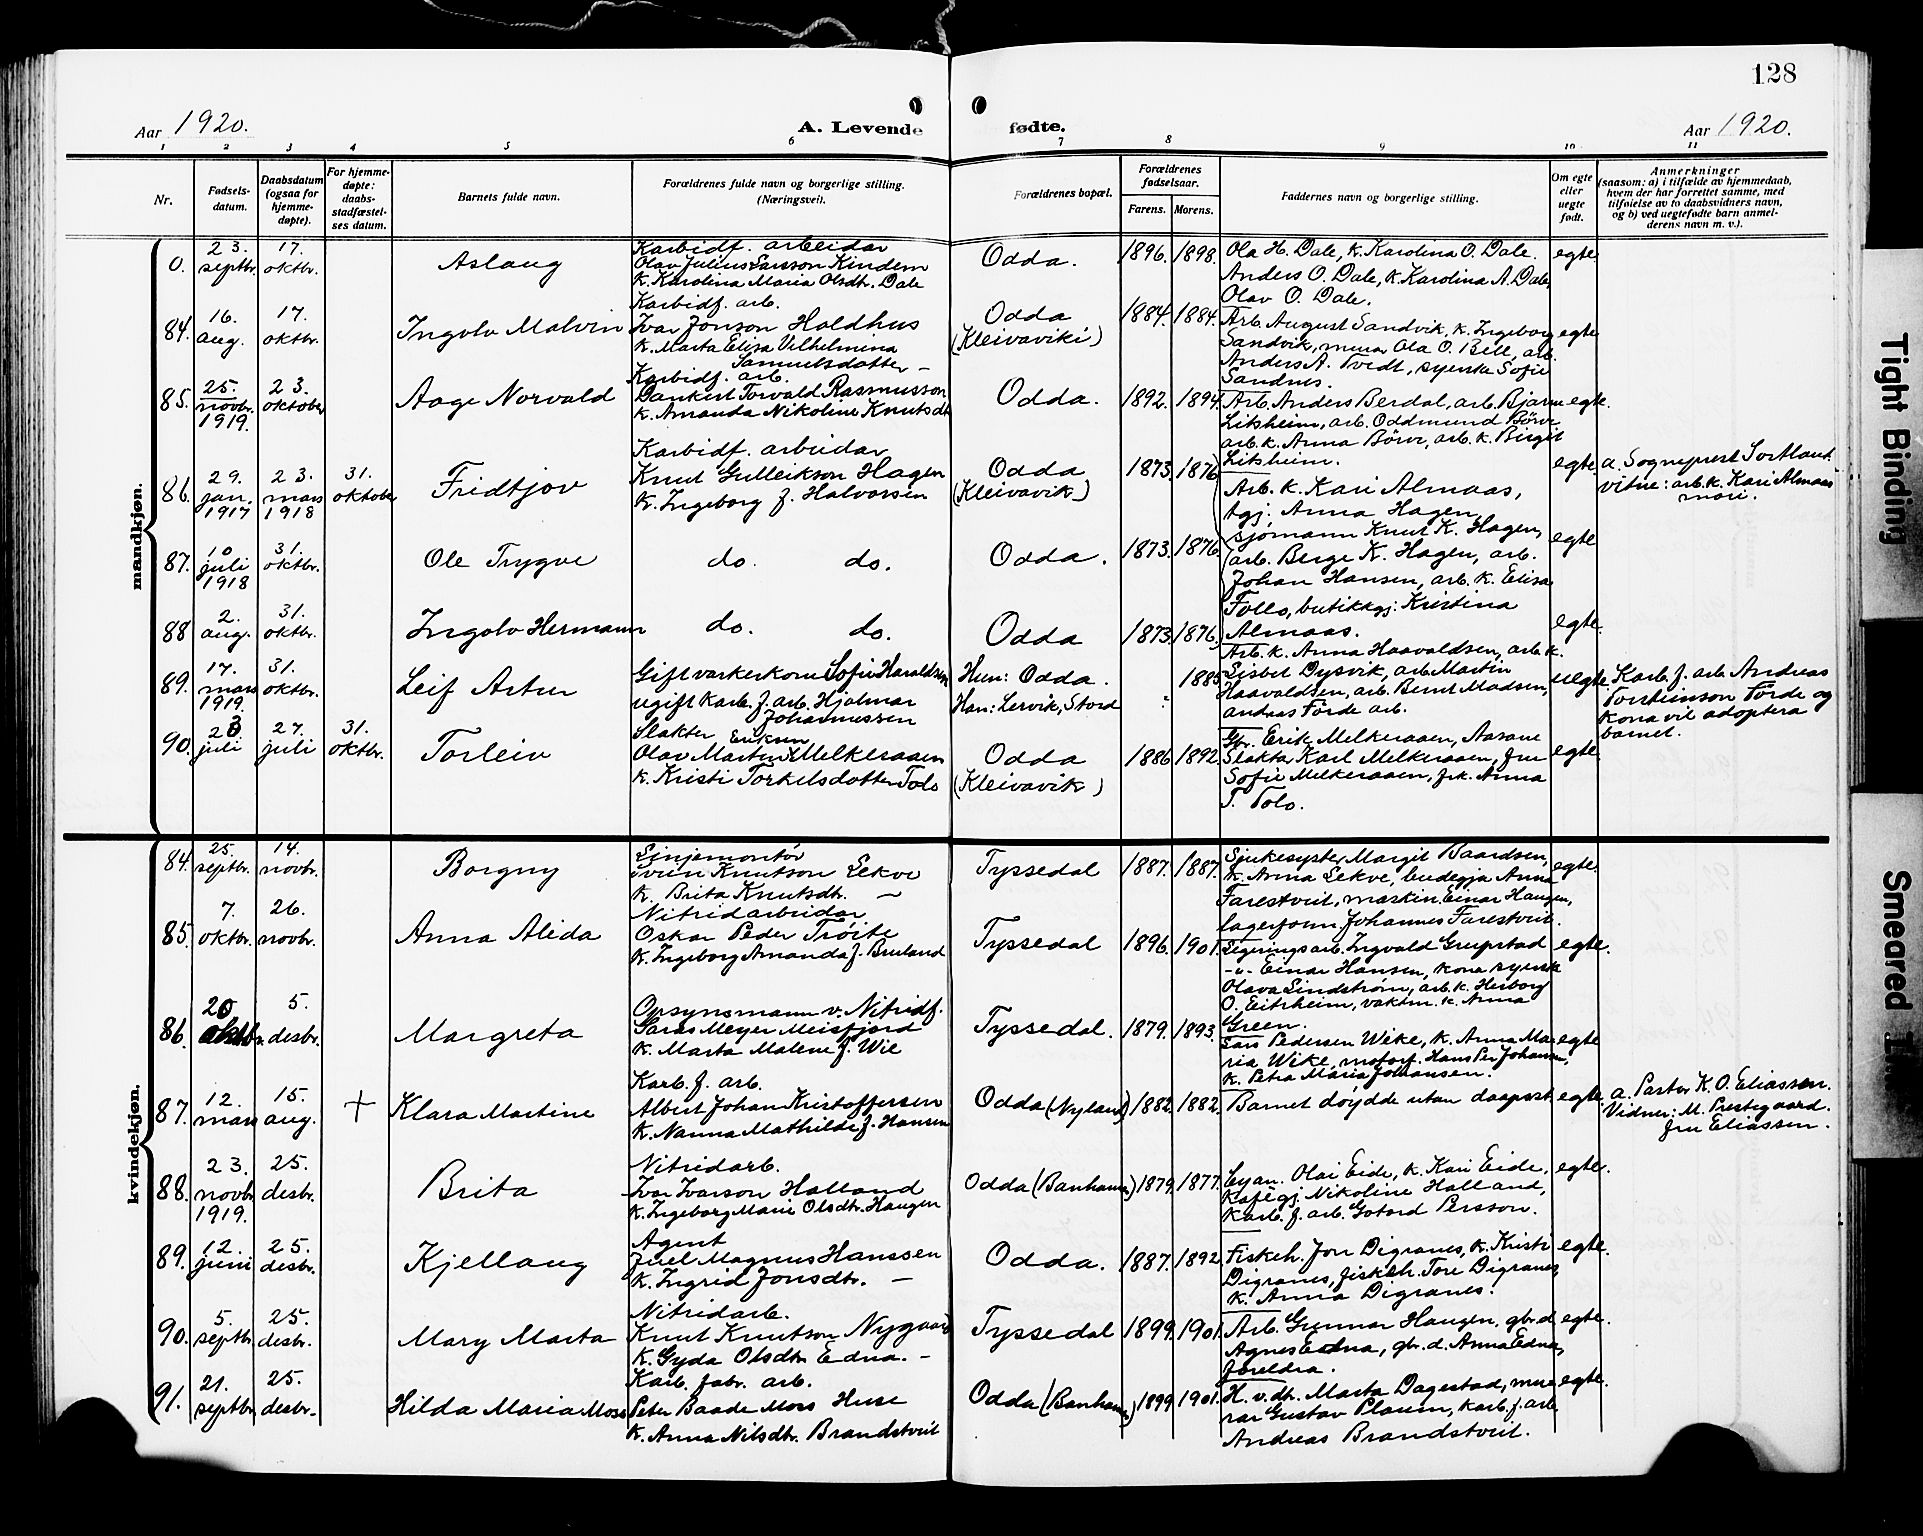 128
Aar 1920.
A. Levende fødte.
Aar 1920.
1 2 3 4 5 6 7 8 9 10 11
Nr.
Fødsels-
datum.
Daabsdatum
(ogsaa for
hjemme-
døpte).
For hjemme-
døpte:
daabs-
stadfæstel-
ses datum.
Barnets fulde navn.
Forældrenes fulde navn og borgerlige stilling.
(Næringsvei).
Forældrenes bopæl.
Forældrenes
fødselsaar.
Farens. Morens.
Faddernes navn og borgerlige stilling.
Om egte
eller
uegte
født.
Anmerkninger
(saasom: a) i tilfælde av hjemmedaab,
hvem der har forrettet samme, med
tilføielse av to daabsvidners navn,
og b) ved uegtefødte barn anmel-
derens navn m. v.).
mandkjøn.
0.
23.
septbr.
17.
oktbr.
Aslaug
Karbidf. arbeidar
Olav Julius Larsson Kindem
k. Karolina Maria Olsdt. Dale
Odda.
1896. 1898.
Ola H. Dale, k. Karolina O. Dale.
Anders O. Dale, k. Karolina A. Dale,
Olav O. Dale.
egte
84.
16.
aug.
17.
oktbr.
Ingolv Malvin
Karbidf. arb.
Ivar Jonson Haldhus
k. Marta Elisa Vilhelmina
Samuelsdatter —
Odda
(Kleivaviki)
1884. 1884.
Arb. August Sandvik, k. Ingeborg
Sandvik, murar Ola O. Bell, arb.
Anders A. Tvedt, syerska Sofie
Sandnes.
egte
85.
25.
novbr.
1919.
23.
oktober
Aage Norvald
Karbidf. arb.
Dankert Torvald Rasmusson
k. Amanda Nikoline Knutsdt.
Odda.
1892. 1894.
Arb. Anders Berdal, arb. Bjarne
Litsheim, arb. Oddmund Börve,
arb. k. Anna Börve, arb. k. Birgit
Litsheim.
egte.
86.
29.
jan.
1917
23.
mars
1918
31.
oktober
Fridtjov
Karbidf. arbeidar
Knut Gulleikson Hagen
k. Ingeborg f. Halvorsen
Odda
(Kleivavik)
1873. 1876
Arb. k. Kari Almaas,
tgj. Anna Hagen,
sjømann Knut K. Hagen,
arb. Berge K. Hagen, arb.
Johan Hansen, arb. k. Elisa
Follo, butikkgj. Kristina
Almaas.
egte
a. Sogneprest Sortland.
vitne: arb. k. Kari Almaas
87.
10
juli
1918
31.
oktbr.
Ole Trygve
do. do.
Odda.
1873. 1876
egte
88
2.
aug.
31.
oktbr.
Ingolv Hermann
do. do.
Odda
1873 1876
egte.
89.
17.
mars
1919.
31.
oktbr.
Leif Artur
Gift vaskerkone Sofie Haraldsen
ugift karb. f. arb. Hjalmar
Johannessen
Hun: Odda.
Han: Lervik, Stord
1885
Arb. k. Anna Haavaldsen, arb. k.
Lisbet Dysvik, arb. Martin
Haavaldsen, arb. Bernt Madsen,
andras Förde arb.
uegte.
Karb. f. arb Andreas
Torsteinson Förde og
kona vil adoptera
barnet.
90.
23
juli
27.
juli
31.
oktbr.
Torleiv
Slakter
Eriksen
Olav Martin Melkeraaen
k. Kristi Torkelsdotter Tolo
Odda
(Kleivavik)
1886 1892
Gbr. Erik Melkeraaen, Aasane
Slakta Karl Melkeraaen, fru
Sofie Melkeraaen, frk. Anna
T. Tolo.
egte
kvindekjøn.
84.
25.
septbr.
14.
novbr.
Borgny
Linjemontör
Svein Knutson Lekve
k. Brita Knutsdt. —
Tyssedal
1887. 1887.
Sjukesyster Margit Baardsen,
k. Anna Lekve, budegja Anna
Farestveit, maskin Einar Haugen,
lagerform. Johannes Farestveit.
egte.
85.
7.
oktbr.
26.
novbr.
Anna Alida
Nitridarbeidar
Oskar Peder Tröite
k. Ingeborg Amanda f. Bruland
Tyssedal
1896. 1901.
Legeringsarb. Ingvald Grupstad
-"- Einar Hansen, kona syersk
Olava Lindström, arb. k. Herborg
O. Eitrheim, vaktm. k. Anna
Green.
egte.
86.
20
oktbr.
5.
desbr.
Margreta
Opsynsmann v. Nitridf.
Lars Meyer Meisfjord
k. Marta Malene f. Wie
Tyssedal.
1879. 1893.
Lars Pedersen Wike, k. Anna Ma
ria Wike, motorf. Hans Per Johansen,
k. Petra Maria Johansen.
egte
87.
12.
mars
15.
aug.
+
Klara Martine
Karb. f. arb.
Albert Johan Kristoffersen
k. Nanna Mathilde f. Hansen
Odda (Nyland)
1882. 1882.
Barnet döydde utan daapsst.
egte.
a. Pastor K. O. Eliassen.
Vidner: M. Prestegaard.
fru Eliassen.
88.
23.
novbr.
1919.
25.
desbr.
Brita
Nitridarb.
Ivar Ivarson Halland
k. Ingeborg Marie Olsdtr. Haugen
Odda (Banhamn)
1879. 1877.
Olai Eide, k. Kari Eide,
kafegj. Nikoline Halland,
karb. f. arb. Gotard Persson.
egte.
89.
12.
juni
25.
desbr.
Kjellaug
Agent
Juel Magnus Hanssen
k. Ingrid Jonsdtr. —
Odda.
1887. 1892
Fiskeh. Jon Digranes, k. Kristi
Digranes, fiskeh. Tore Digranes,
k. Anna Digranes.
egte.
90.
5.
septbr.
25.
desbr.
Mary Marta
Nitridarb.
Knut Knutson Nygaard
k. Gyda Olsdtr. Edna. —
Tyssedal
1899. 1901.
Arb. Gunnar Haugen, gbr. d.
Agnes Edna, gbr. d. Anna Edna,
foreldra.
egte.
91.
21.
septbr.
25.
desbr.
Hilda Maria Moss
Karb. fabr. arb.
Peter Baade Moss Huse
k. Anna Nilsdtr. Brandstveit
Odda (Banhamn)
1899 1901.
H. v. dt. Marta Dagestad, mu
rar Gustav Plaum, karb. f. arb
Andreas Brandstveit.
egte.
Tight Binding
Smeared